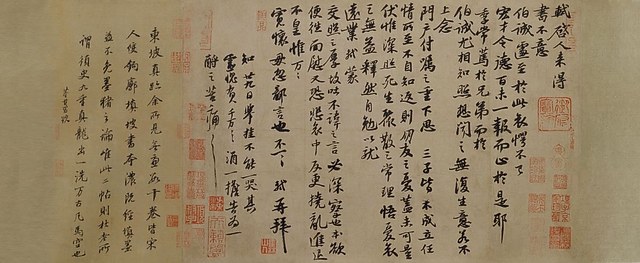 軾啓人來得
書不意
伯誠遽至於此哀愕不已
宏才令德百未一報而止於是耶
季常篤於兄弟而於
伯誠尤相知照想聞之無復生意若不
上念
門戶付囑之重下思三子皆不成立任
情所至不自知返則朋友之憂蓋未可量
伏惟深照死生聚散之常理悟憂哀
之無益釋然自勉以就
遠業軾蒙
交照之厚故吐不諱之言必深察也本欲
便往面慰又恐悲哀中反更撓亂進退
不皇惟萬萬
寬懷毋忽鄙言也不一一軾再拜
知廿九日舉掛不能一哭其
靈愧負千萬千萬酒一擔告為一
酹之苦痛苦痛
東坡真蹟余所見無慮數十卷皆宋
人雙鉤廓填坡書本濃既經填墨
益不免墨豬之論唯此二帖則杜老所
謂須臾九重真龍出一洗萬古凡馬空也
董其昌題